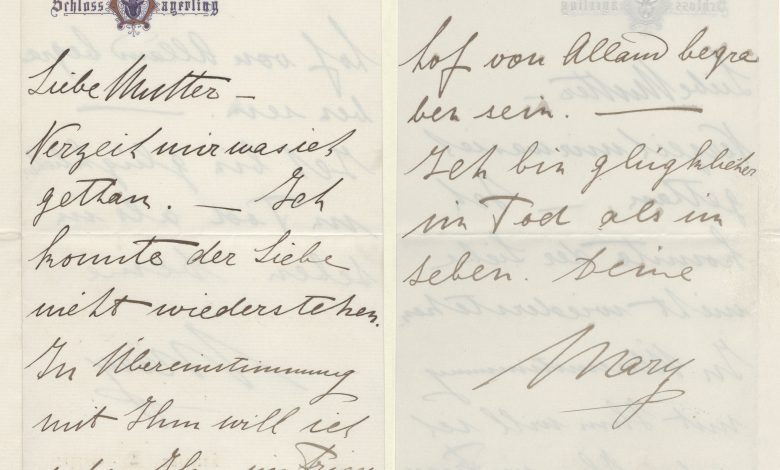 Schloss Mayerling
Liebe Mutter –
Verzeih mir was ich
gethan. – Ich
konnte der Liebe
nicht wiederstehen.
In Übereinstimmung
mit Ihm will ich
neben Ihm im Frien
hof von Alland begra
ben sein. —
Ich bin glüklicher
im Tod als im
Leben. Deine
Mary